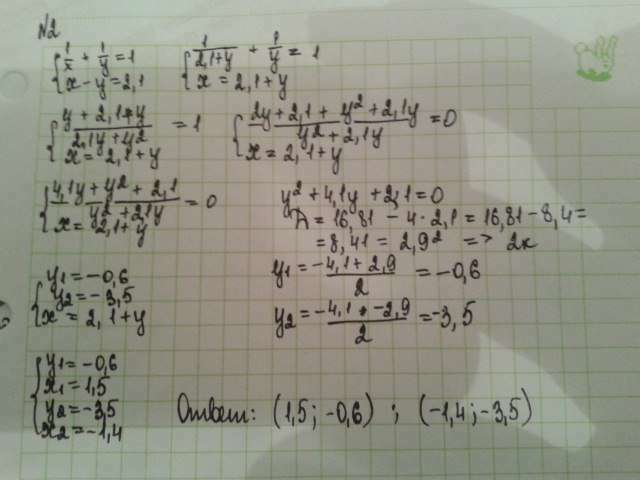 №2
{ 1/x + 1/y = 1
{ x - y = 2,1
{ 1/(2,1+y) + 1/y = 1
{ x = 2,1+y
{ (y + 2,1+y)/(2,1y+y²) = 1
{ x = 2,1+y
{ (2y+2,1+y²+2,1y)/(y²+2,1y) = 0
{ x = 2,1+y
{ (4,1y+y²+2,1)/(y²+2,1y) = 0
{ x = 2,1+y
y²+4,1y+2,1=0
D = 16,81 - 4·2,1 = 16,81-8,4=
= 8,41 = 2,9² => 2к
y1 = (-4,1+2,9)/2 = -0,6
y2 = (-4,1+-2,9)/2 = -3,5
{ y1 = -0,6
{ y2 = -3,5
{ x = 2,1+y
{ y1 = -0,6
{ x1 = 1,5
{ y2 = -3,5
{ x2 = -1,4
Ответ: (1,5; -0,6) ; (-1,4; -3,5)